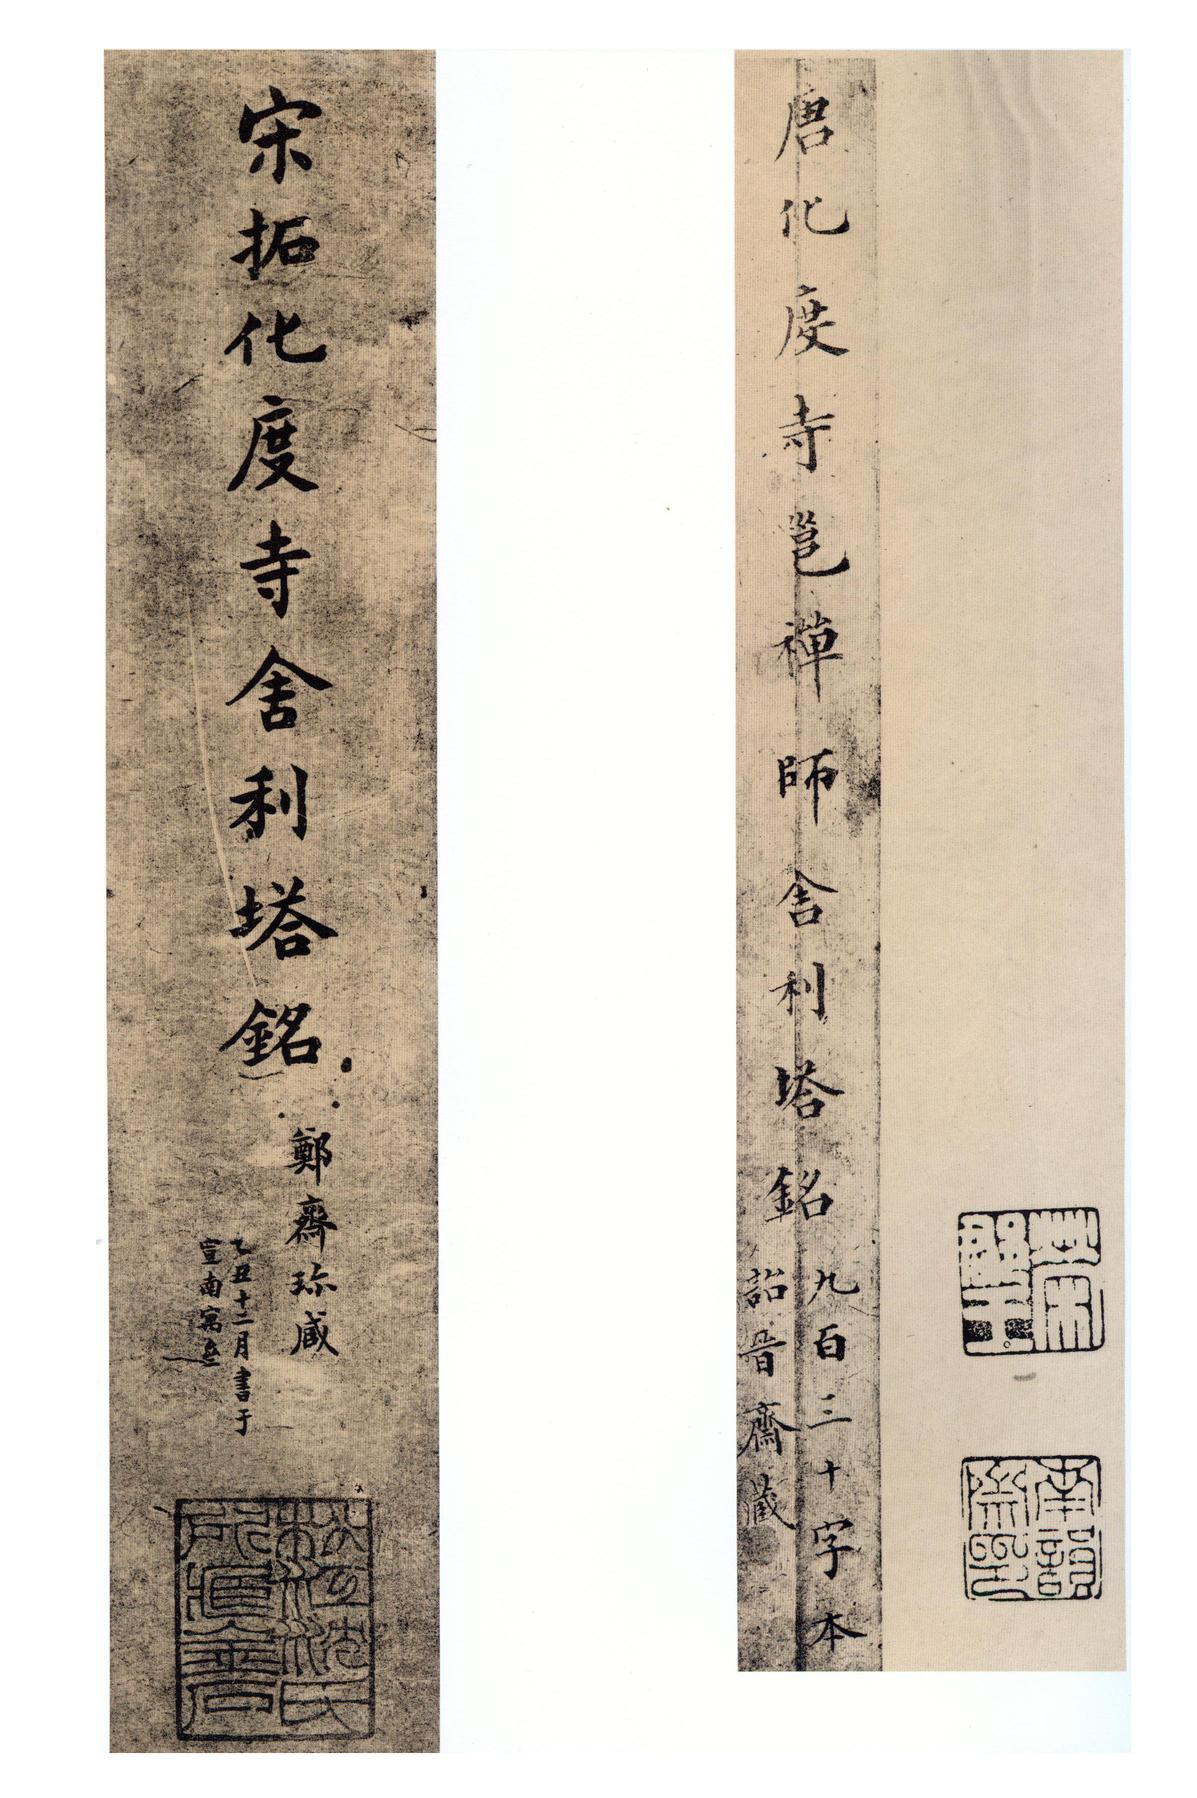 唐化度寺邕禪師舍利塔銘
九百三十字本
詒晉齋藏
宋拓化度寺舍利塔銘
鄭齋珎藏
乙丑十二月書于
宣南寓